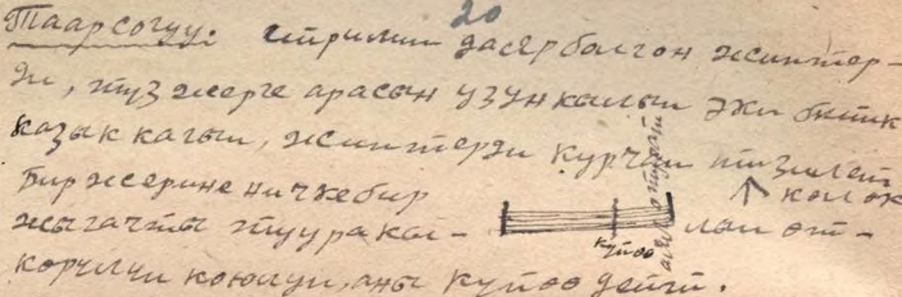 20
Таар согуу. ийрилип даяр болгон жиптер-
ди, түз жерге арасын узун калып эки бийик
казык кагып, жиптерди курчап тизилет
Бир жерине ничке бир колок
жыгачты туура кал- лап өт-
көрүлүп коюлуп, аны күйөө дейт.
күйөө